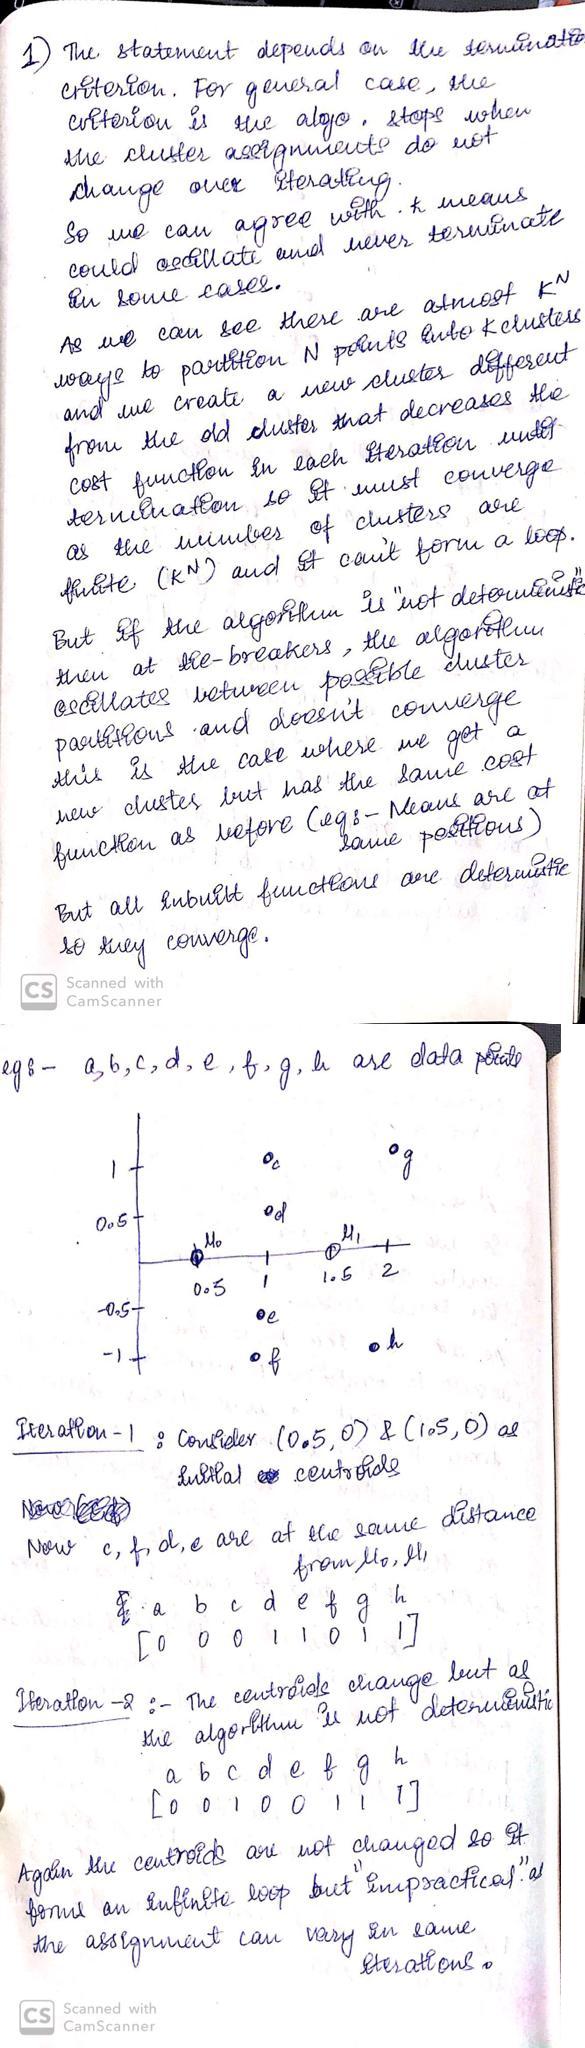 1) The statement depends on the terminate
criterion. For general case, the
criterion is the algo. stops when
the cluster assignments do not
change over iterating.
So we can agree with k means
could oscillate and never terminate
in some cases.
As we can see there are atmost K^N
ways to partition N points into K clusters
and we create a new cluster different
from the old cluster that decreases the
cost function in each iteration until
termination so it must converge
as the number of clusters are
finite (K^N) and it can't form a loop.
But if the algorithm is "not deterministic"
then at tie-breakers, the algorithm
oscillates between possible cluster
partitions and doesn't converge
this is the case where we get a
new cluster but has the same cost
function as before (eg:- Means are at
same positions)
But all inbuilt functions are determistic
so they converge.
CS Scanned with
CamScanner
eg:- a, b, c, d, e, f, g, h are data points
1 c g
0.5 d
μ0 μ1
0.5 1 1.5 2
-0.5 e
-1 f h
Iteration-1 : Consider (0.5, 0) & (1.5, 0) as
initial centroids
Now c, f, d, e are at the same distance
from μ0, μ1
a b c d e f g h
[0 0 0 1 1 0 1 1]
Iteration-2 :- The centroids change but as
the algorithm is not deterministic
a b c d e f g h
[0 0 1 0 0 1 1 1]
Again the centroids are not changed so it
forms an infinite loop but "impractical" as
the assignment can vary in same
iterations.
CS Scanned with
CamScanner